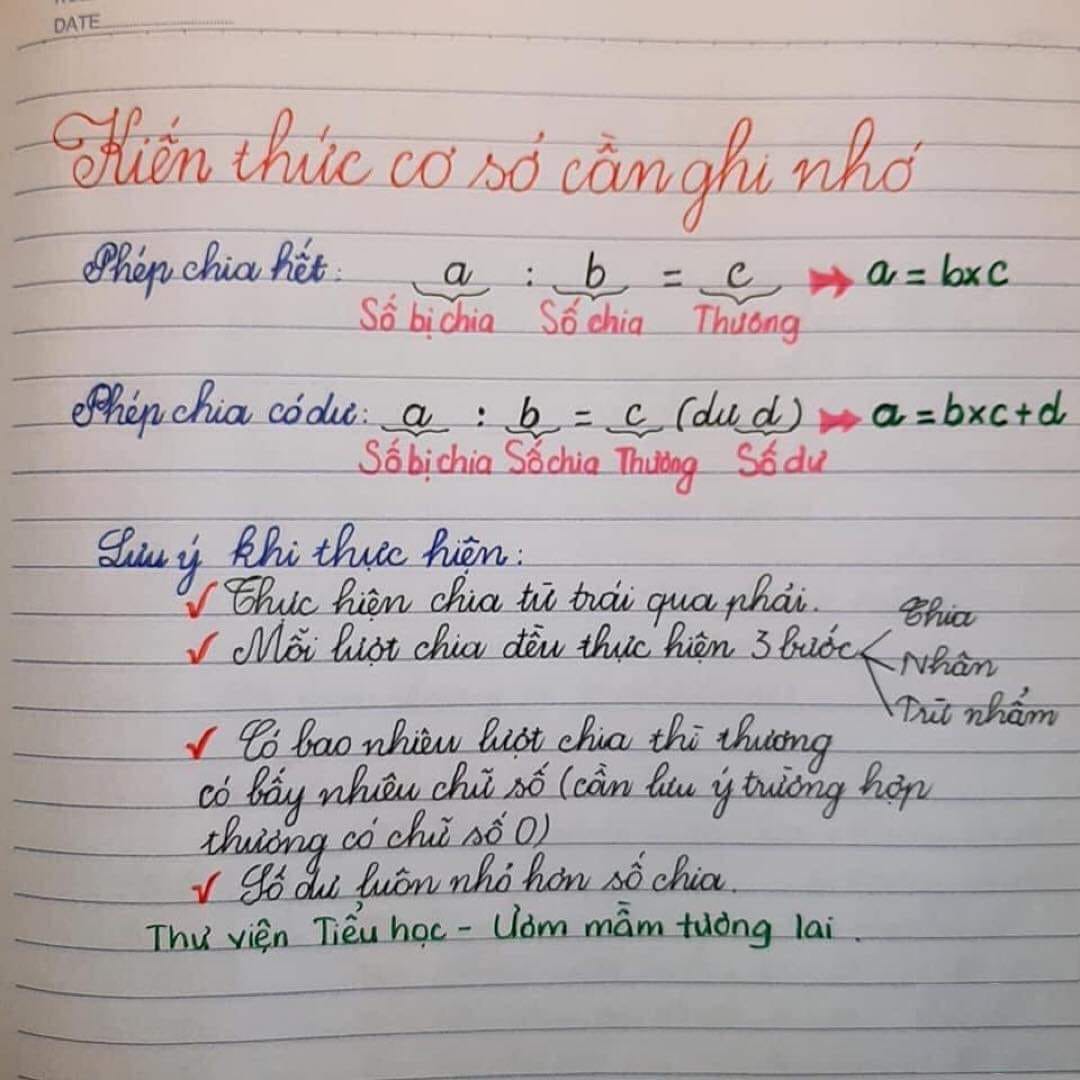 DATE
Kiến thức cơ sở cần ghi nhớ
Phép chia hết: a : b = c ➵ a = b×c
Số bị chia Số chia Thương
Phép chia có dư: a : b = c (dư d) ➵ a = b×c+d
Số bị chia Số chia Thương Số dư
Lưu ý khi thực hiện:
✓ Thực hiện chia từ trái qua phải.
✓ Mỗi lượt chia đều thực hiện 3 bước
Chia
Nhân
Trừ nhẩm
✓ Có bao nhiêu lượt chia thì thương
có bấy nhiêu chữ số (cần lưu ý trường hợp
thương có chữ số 0)
✓ Số dư luôn nhỏ hơn số chia.
Thư viện Tiểu học - Ươm mầm tương lai.